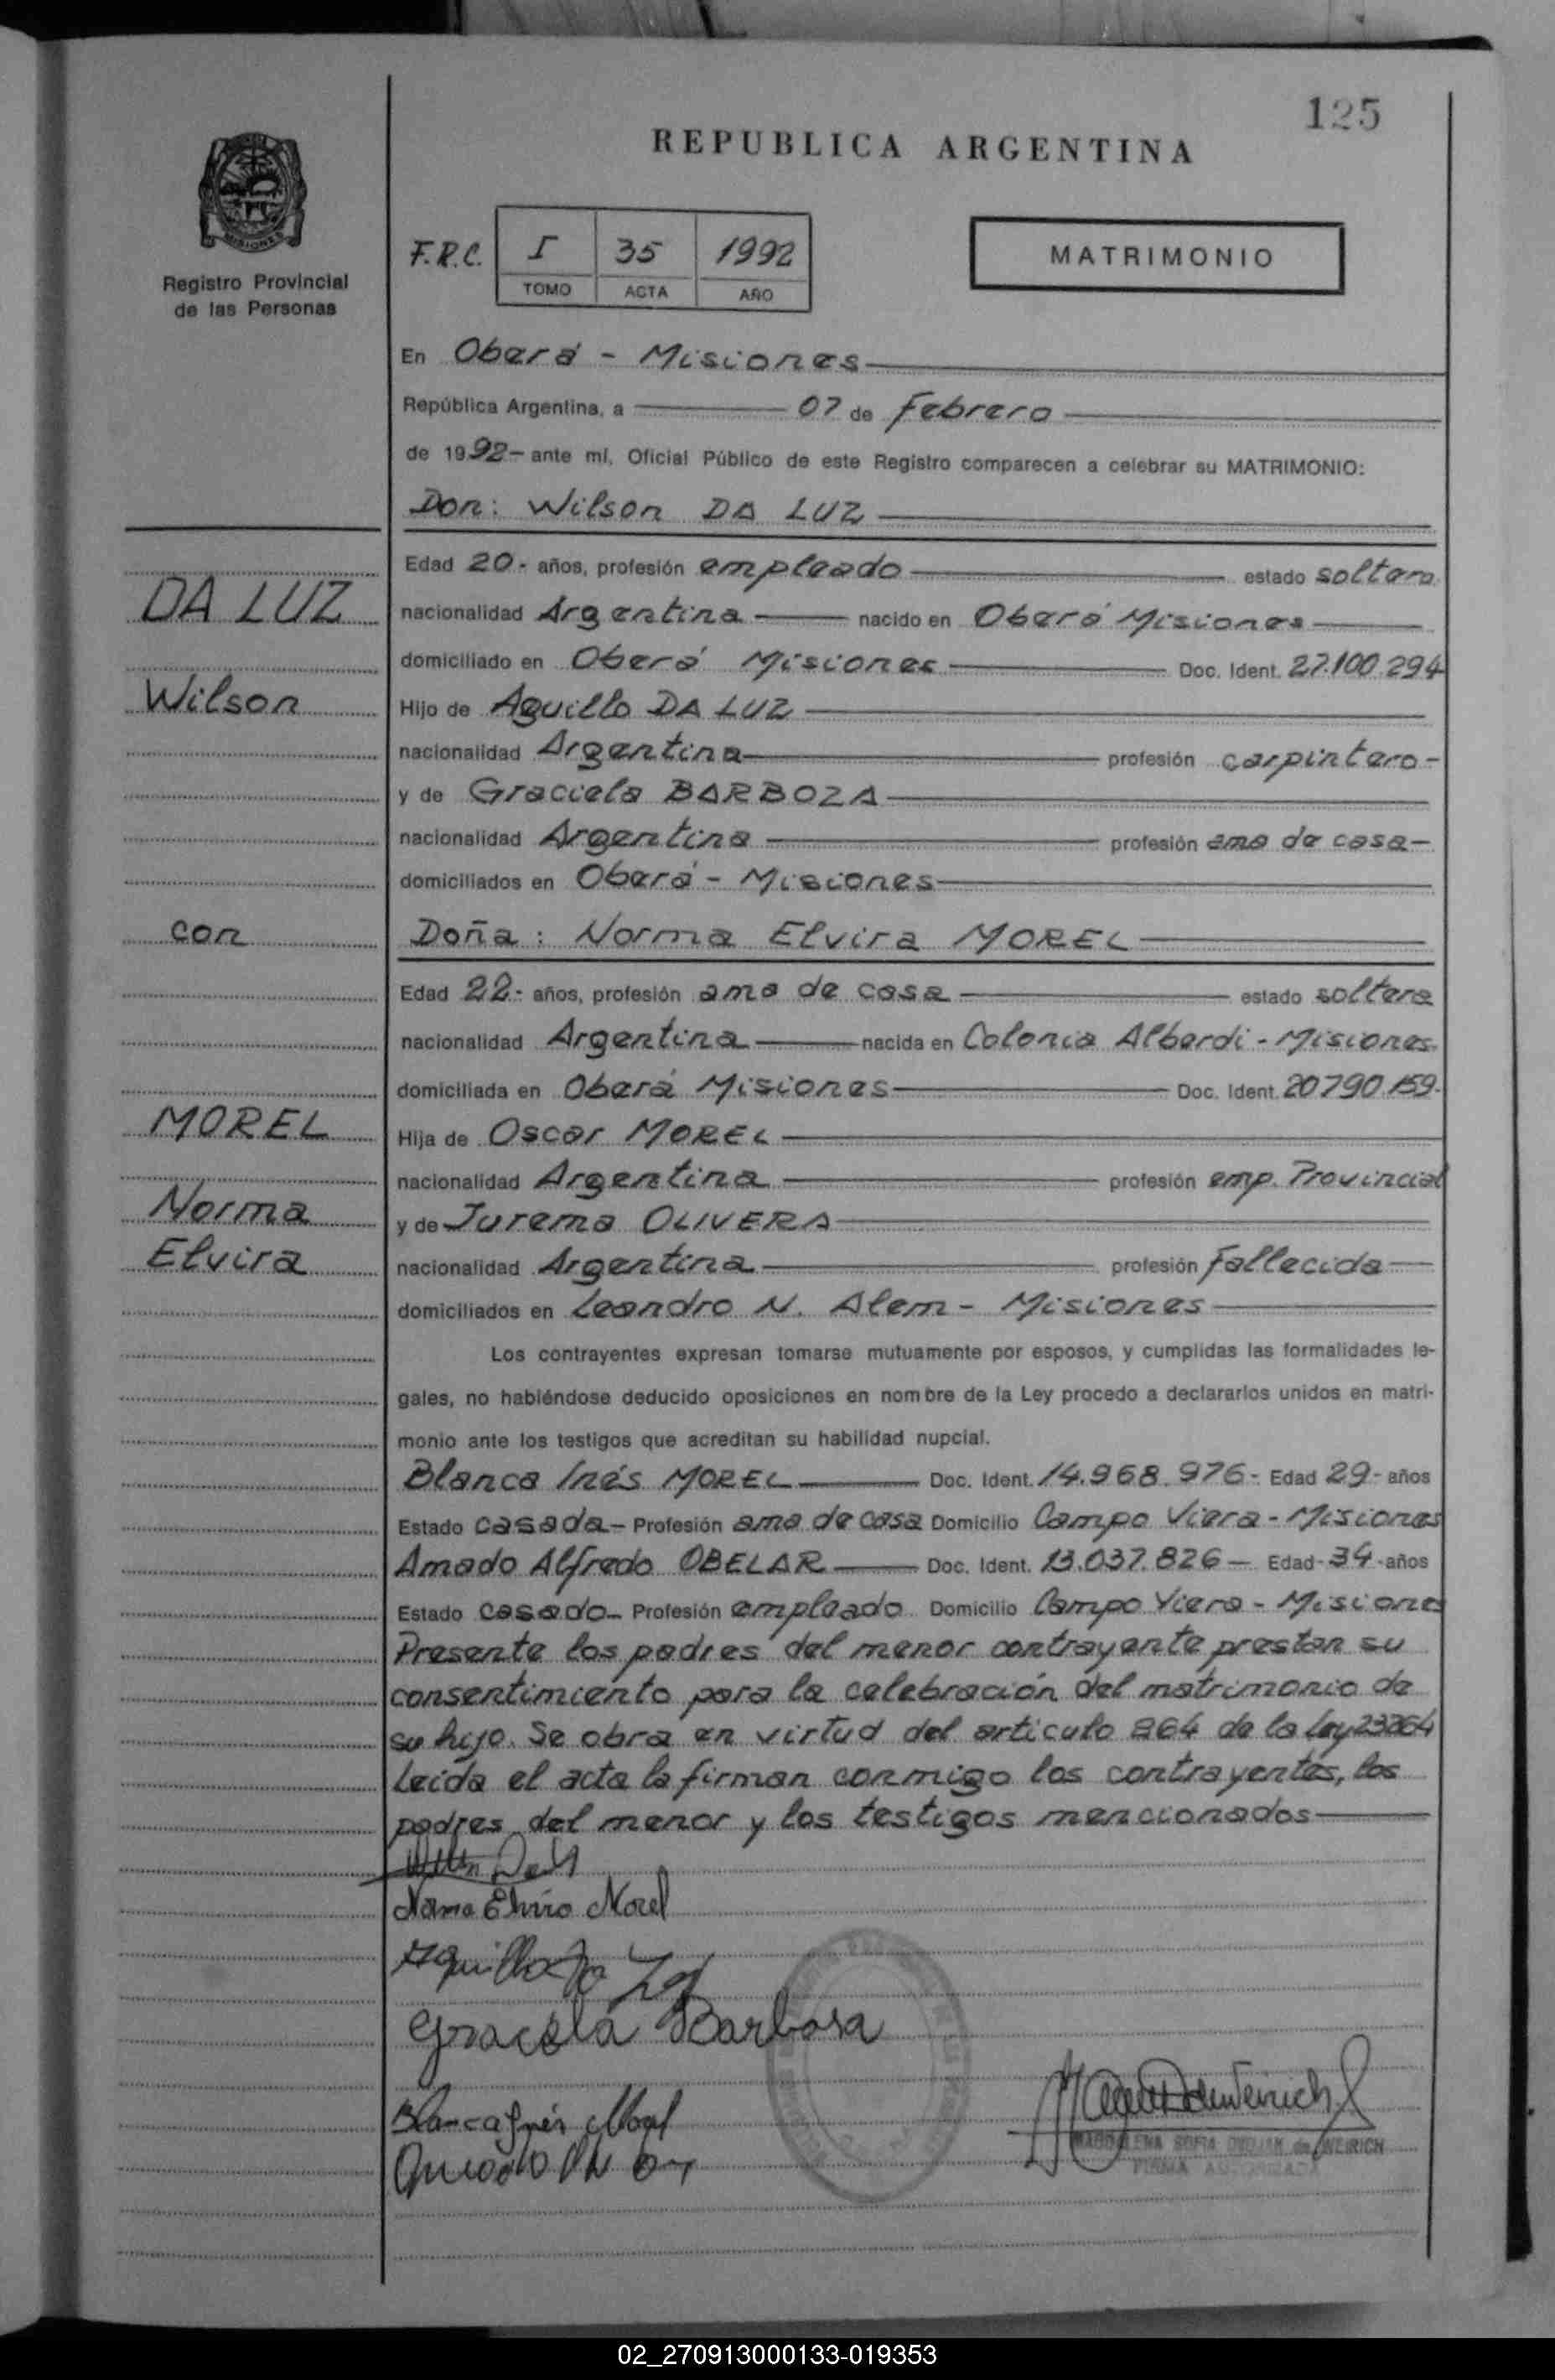 125
REPUBLICA ARGENTINA
MISIONES
Registro Provincial
de las Personas
F.R.C. I 35 1992
TOMO ACTA AÑO
MATRIMONIO
En Oberá - Misiones
República Argentina, a 07 de Febrero
de 1992- ante mí, Oficial Público de este Registro comparecen a celebrar su MATRIMONIO:
Don: Wilson DA LUZ
Edad 20- años, profesión empleado estado soltero
DA LUZ
nacionalidad Argentina nacido en Oberá Misiones
domiciliado en Oberá Misiones Doc. Ident. 27.100.294
Wilson
Hijo de Aguillo DA LUZ
nacionalidad Argentina profesión carpintero-
y de Graciela BARBOZA
nacionalidad Argentina profesión ama de casa-
domiciliados en Oberá - Misiones
con
Doña: Norma Elvira MOREL
Edad 22- años, profesión ama de casa estado soltera
nacionalidad Argentina nacida en Colonia Alberdi - Misiones
domiciliada en Oberá Misiones Doc. Ident. 20790.159-
MOREL
Hija de Oscar MOREL
nacionalidad Argentina profesión emp. Provincial
Norma
y de Jurema OLIVERA
Elvira
nacionalidad Argentina profesión Fallecida
domiciliados en Leandro N. Alem - Misiones
Los contrayentes expresan tomarse mutuamente por esposos, y cumplidas las formalidades le-
gales, no habiéndose deducido oposiciones en nombre de la Ley procedo a declararlos unidos en matri-
monio ante los testigos que acreditan su habilidad nupcial.
Blanca Inés MOREL Doc. Ident. 14.968.976- Edad 29- años
Estado casada- Profesión ama de casa Domicilio Campo Viera - Misiones
Amado Alfredo OBELAR Doc. Ident. 13.037.826- Edad-34-años
Estado casado- Profesión empleado Domicilio Campo Viera - Misiones
Presente los padres del menor contrayente prestan su
consentimiento para la celebración del matrimonio de
su hijo. Se obra en virtud del articulo 264 de la Ley 23264
Leida el acta la firman conmigo los contrayentes, los
padres del menor y los testigos mencionados
Norma Elvira Morel
Aguillo Da Luz
Graciela Barbosa
Blanca Inés Morel
MAGDALENA SOFIA de WEIRICH
FIRMA AUTORIZADA
02_270913000133-019353